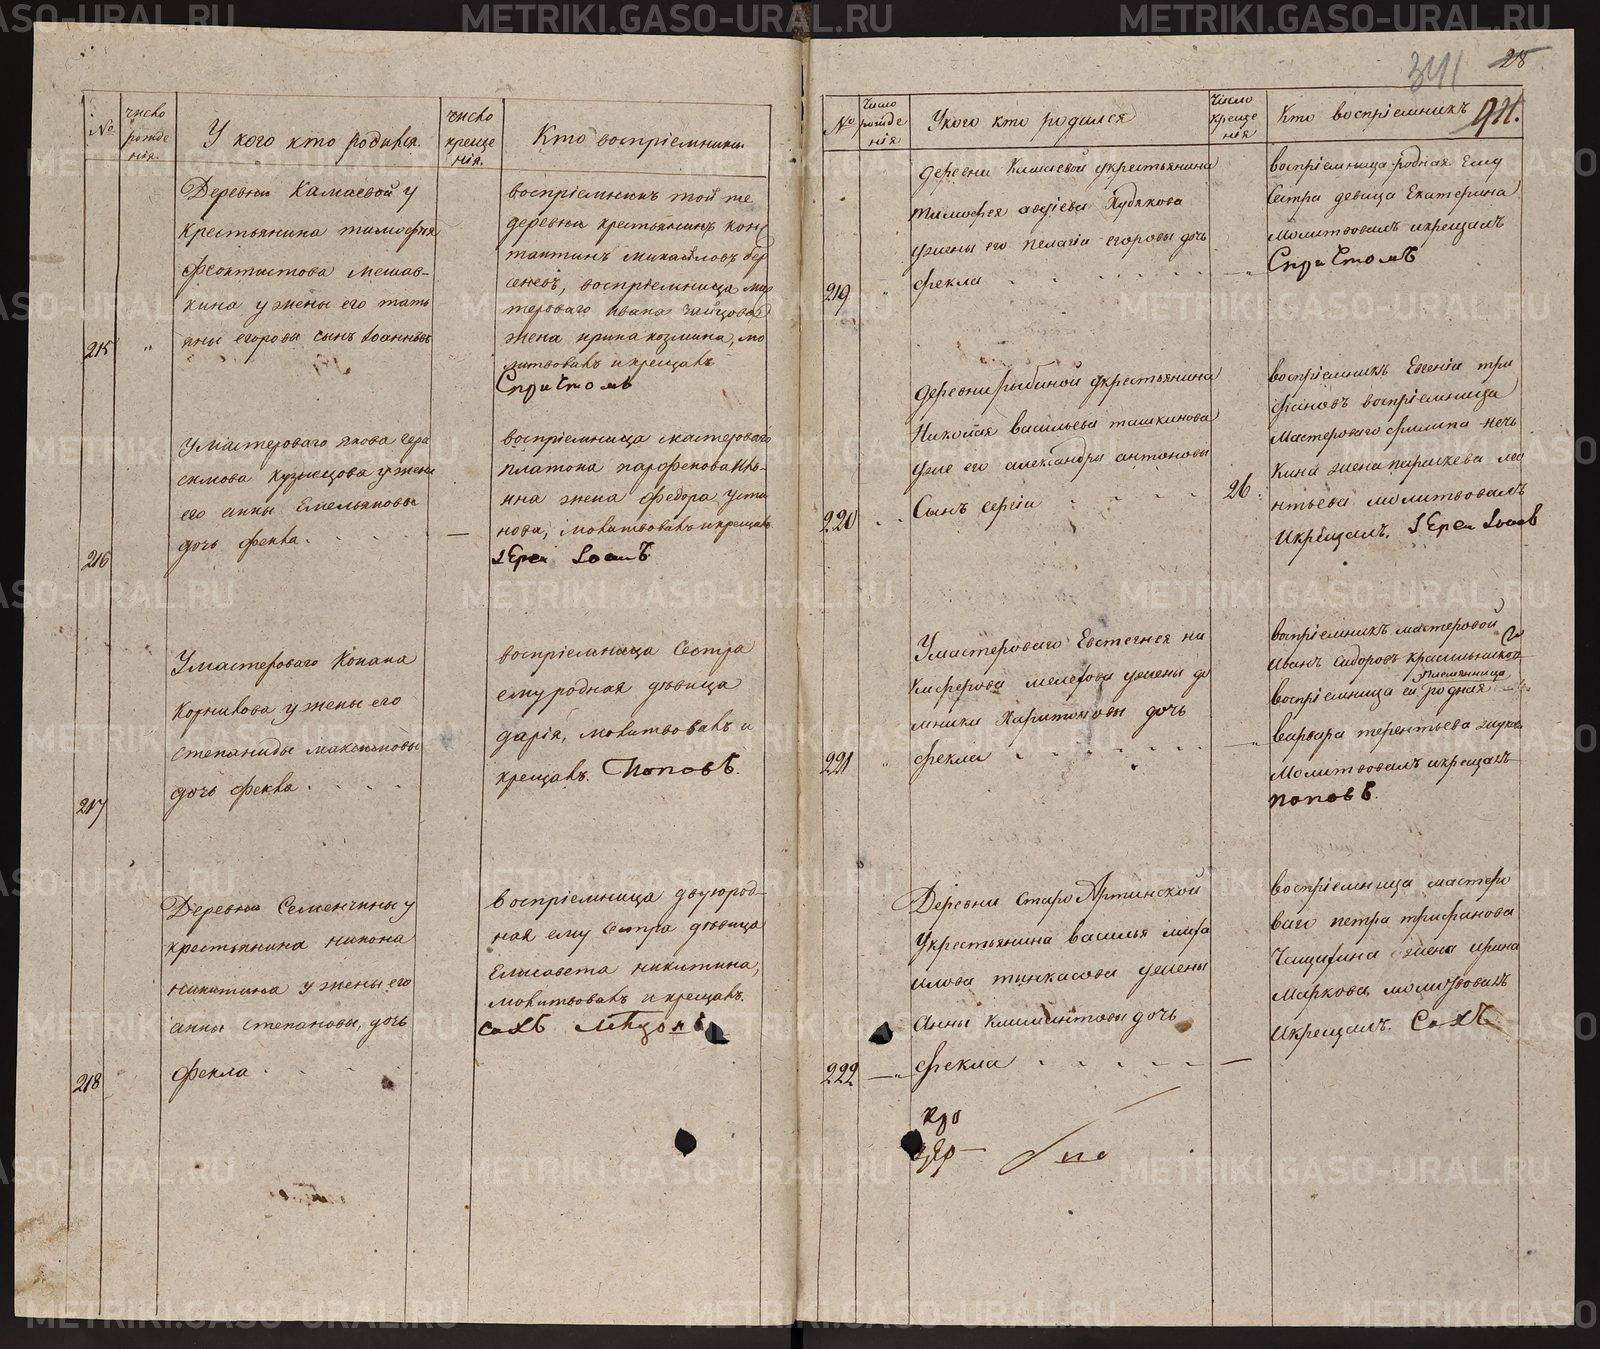 №
число рожде нія.
У кого кто родился.
число креще нія.
Кто воспріемники
Деревни Камаевой у
крестьянина тимофея
феоктистова мешав-
кина у жены его тать
яны егоровы сынъ Іоаннъ
215
воспріемникъ той же
деревни крестьянинъ конс
тантинъ михайловъ бер
сеневъ, воспріемница мас
тероваго ивана зайцова
жена ирина козмина, мо
литвовалъ и крещалъ
Спричтомъ
У мастероваго якова гера
симова кузнецова у жены
его анны Емельяновы
дочь фекла.
216
воспріемница мастероваго
платона парфенова
нна жена федора усти
нова, молитвовалъ и крещалъ
Іерей Іоаннъ
У мастероваго Конана
Корнилова у жены его
степаниды максимовы
дочь фекла
217
воспріемница Сестра
ему родная дѣвица
дарія, молитвовалъ и
крещалъ. Поповъ.
Деревни Семенчины у
крестьянина никона
никитина у жены его
анны степановы, дочь
фекла
218
воспріемница двуюрод-
ная ему сестра дѣвица
Елисавета никитина,
молитвовалъ и крещалъ.
341 28
№
Число рожде нія
У кого кто родился
Число креще нія
Кто воспріемникъ
деревни Камаевой у крестьянина
Тимофея авдіева Худякова
у жены его пелагіи егоровы дочь
фекла
219
воспріемница родная ему
сестра девица Екатерина
молитвовалъ и крещалъ
Спричтомъ
деревни рыбиной у крестьянина
Николая васильева ташкинова
у же его александры антоновы
Сынъ сергіи
220
26
воспріемникъ Евгеніи три
фановъ воспріемница
мастероваго филипа
жена параскева лео
нтьева молитвовалъ
и крещалъ. Іереи Іоанъ
У мастероваго Евстегнея ни
кифорова у жены до
мники Харитоновы дочь
фекла
221
воспріемникъ мастеровой
иванъ сидоровъ
племянница
воспріемница ей родная
варвара терентьева
молитвовалъ и крещалъ
поповъ.
Деревни старо Артинской
У крестьянина василья миха
илова тинкасова у жены
Анны Климентовы дочь
фекла
222
воспріемница мастеро
ваго петра трифанова
жена ирина
Маркова, молитвовалъ
и крещалъ.
METRIKI.GASO-URAL.RU